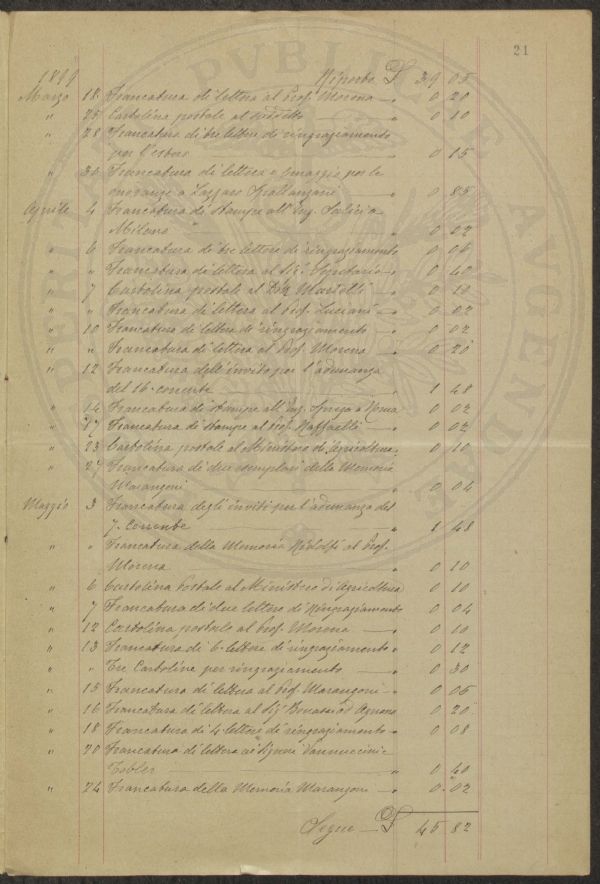 21
1899 Riporto £ 39 05
Marzo 18 Francatura di lettera al Prof. Morena — " 0 20
" 25 Cartolina postale al suddetto — " 0 10
" 28 Francatura di tre lettere di ringraziamento
per l'estero — " 0 15
" 30 Francatura di lettera e per le
onoranze a Lazzaro Spallanzani — " 0 85
Aprile 4 Francatura di stampe all'Ing.
Milano — " 0 02
" 6 Francatura di tre lettere di ringraziamento 0 06
" " Francatura di lettera al Sig. — " 0 40
" 7 Cartolina postale al Martelli — " 0 10
" " Francatura di lettera al Prof. Luciani — " 0 02
" 10 Francatura di lettera di ringraziamento — " 0 02
" " Francatura di lettera al Prof. Morena — " 0 20
" 12 Francatura dell'invito per l'adunanza
del 16 corrente — " 1 48
" 14 Francatura di stampe all'Ing. a Roma 0 02
" 17 Francatura di stampe al Prof. Raffaelli — " 0 02
" 23 Cartolina postale al Ministero di Agricoltura " 0 10
" 27 Francatura di due esemplari della Memoria
Marangoni — " 0 04
Maggio 3 Francatura degli inviti per l'adunanza del
7. Corrente — " 1 48
" " Francatura della Memoria Ridolfi al Prof.
Morena — " 0 10
" 6 Cartolina Postale al Ministero di Agricoltura 0 10
" 7 Francatura di due lettere di Ringraziamento 0 04
" 12 Cartolina postale al Prof. Morena — " 0 10
" 13 Francatura di 6 lettere di ringraziamento " 0 12
" " Tre Cartoline per ringraziamento — " 0 30
" 15 Francatura di lettera al Prof. Marangoni " 0 05
" 16 Francatura di lettera al Sig. 0 20
" 18 Francatura di 4 lettere di ringraziamento " 0 08
" 20 Francatura di lettera ai Signori Vannuccini e
Tobler — " 0 40
" 24 Francatura della Memoria Marangoni " 0 02
Segue — £ 45 82